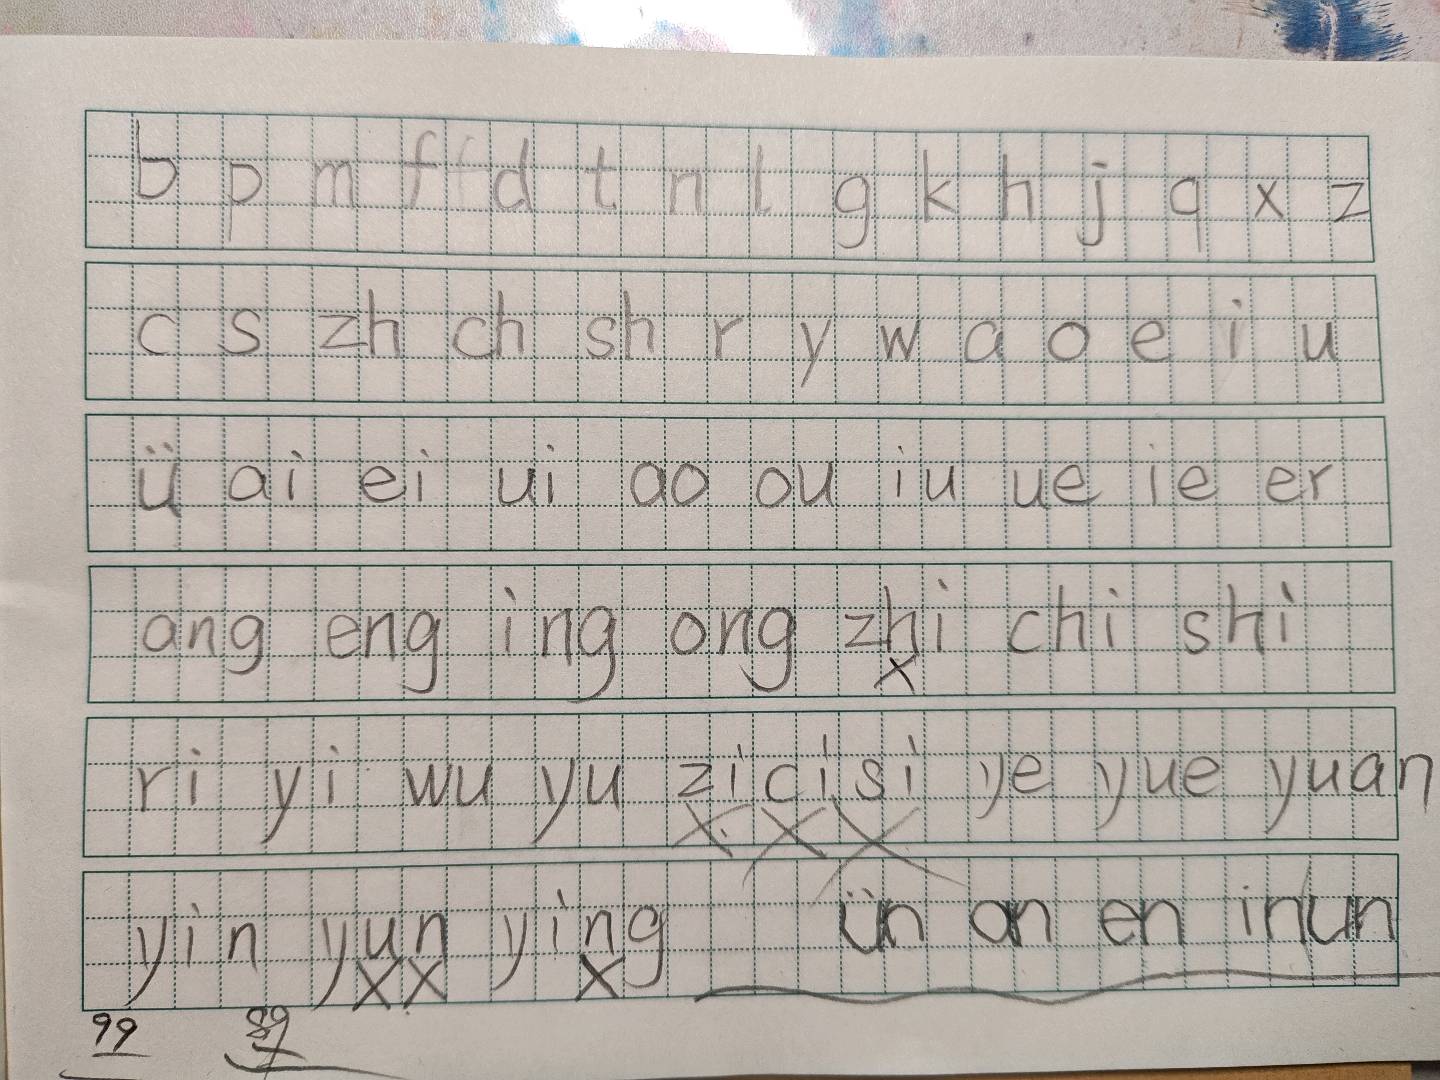 b p m f f d t n l g k h j q x z
c s zh ch sh r y w a o e i u
ü ai ei ui ao ou iu ue ie er
ang eng ing ong zhi chi shi
x
ri yi wu yu zi ci si ye yue yuan
x x x
yin yun ying ün an en in un
x x x
99 89